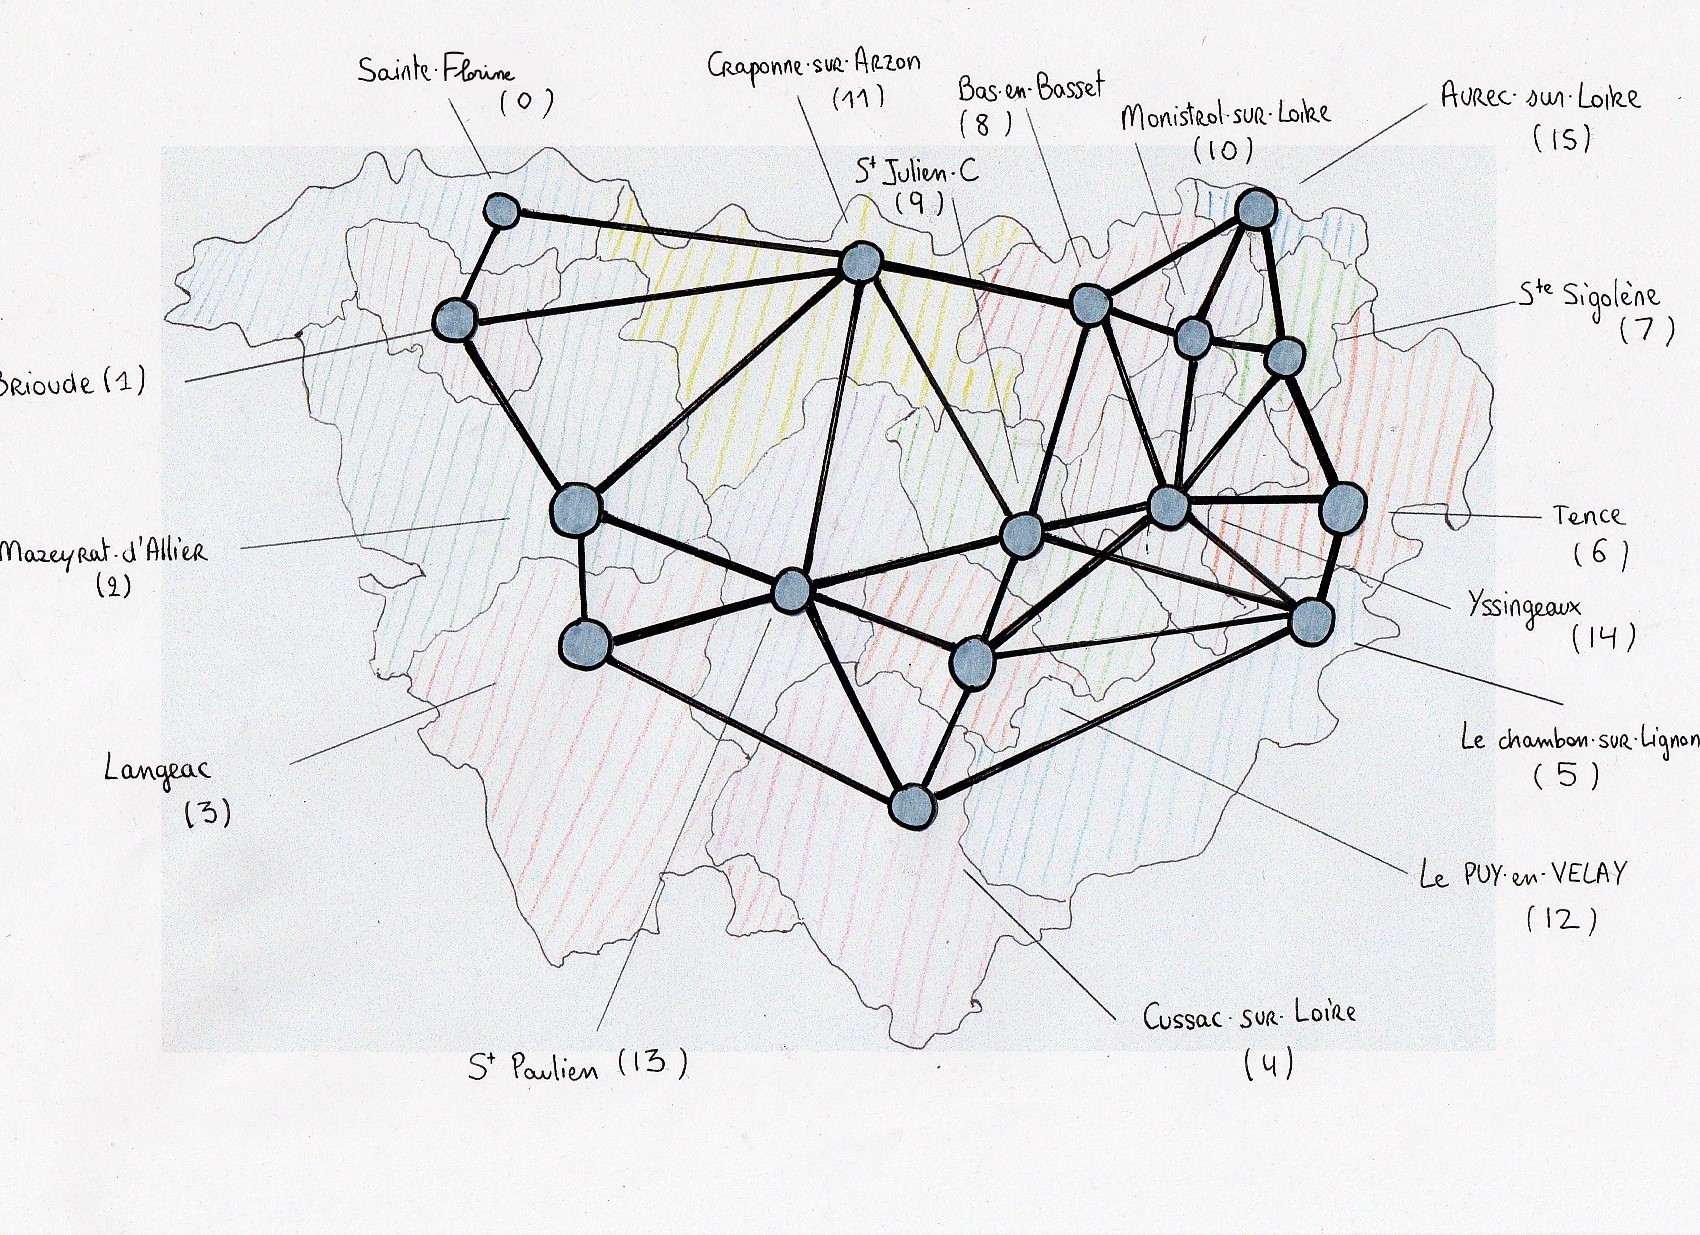 Sainte-Florine
(0)
Craponne-sur-Arzon
(11)
Bas-en-Basset
(8)
Monistrol-sur-Loire
(10)
Aurec-sur-Loire
(15)
St Julien-C
(9)
Ste Sigolène
(7)
Brioude (1)
Mazeyrat-d'Allier
(2)
Tence
(6)
Yssingeaux
(14)
Langeac
(3)
Le chambon-sur-Lignon
(5)
Le PUY-en-VELAY
(12)
Cussac-sur-Loire
(4)
St Paulien (13)